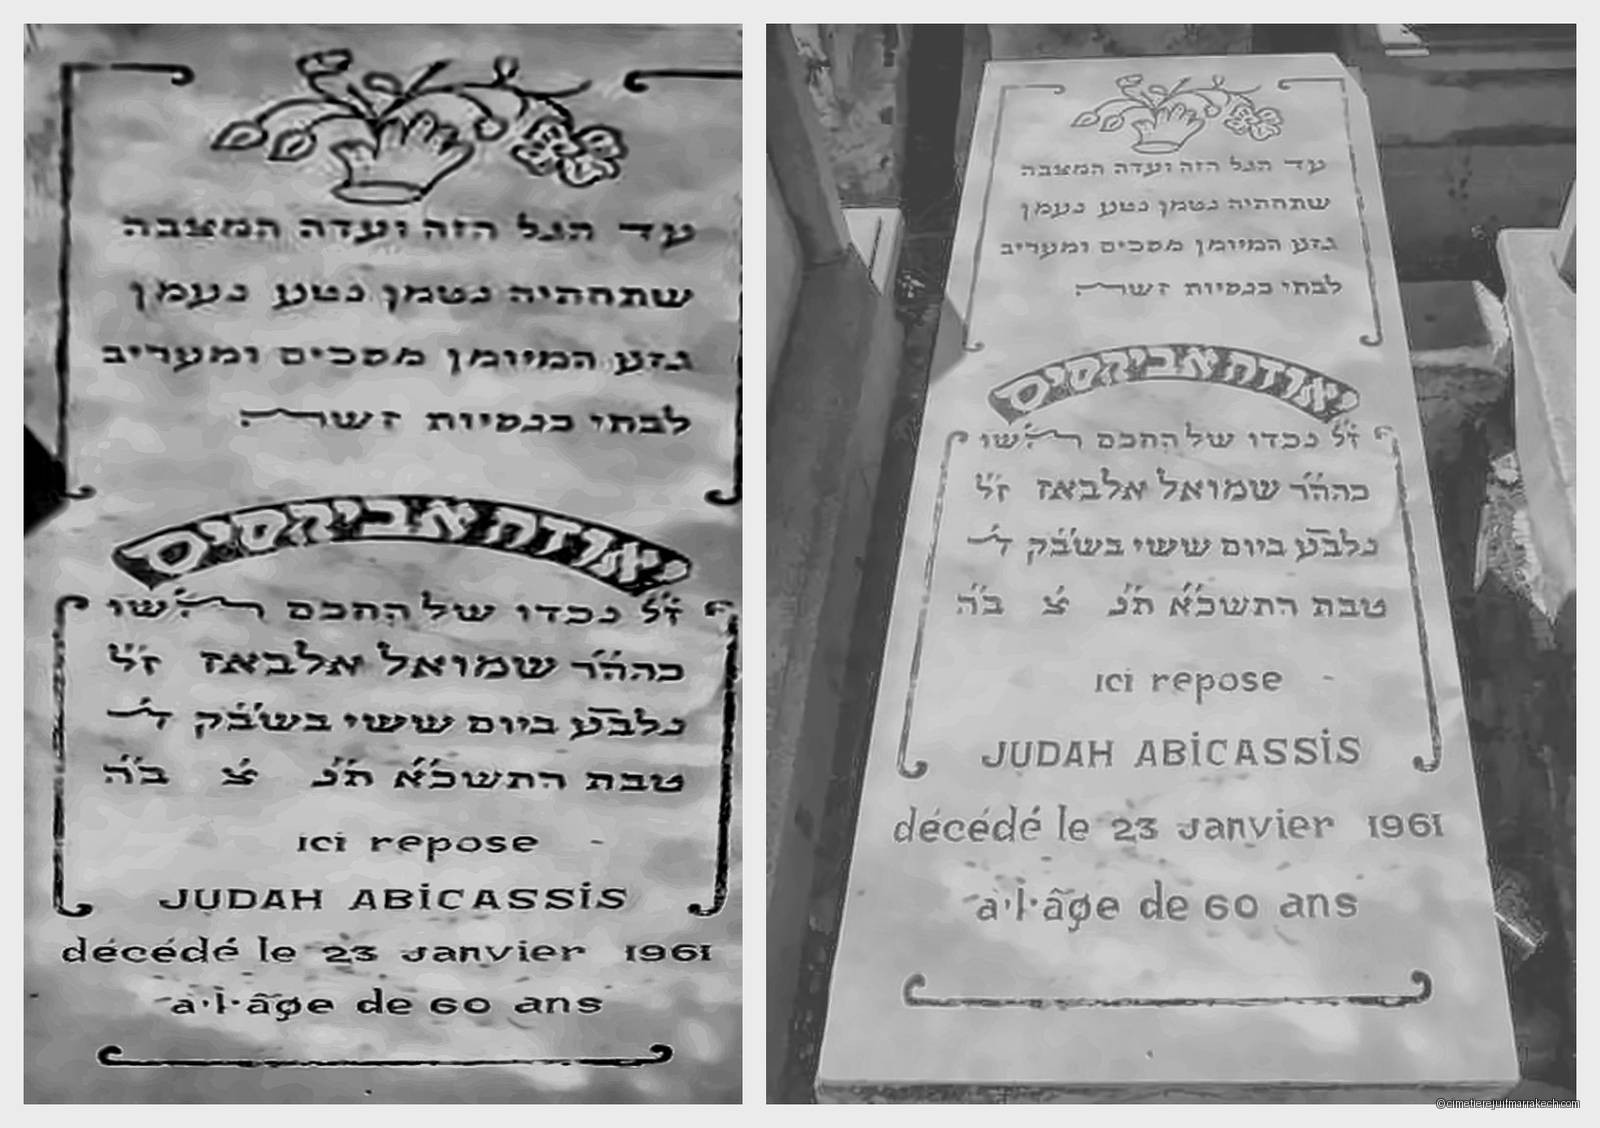 עד הגל הזה ועדה המצבה
שתחתיה נטמן נטע נעמן
גזע המיומן מסכים ומעריב
לבתי כנסיות
יאודה אביקסיס
ז״ל נכדו של החכם
כהה״ר שמואל אלבאז ז״ל
נלב״ע ביום ששי בשב״ק
טבת התשכ״א ב״ה
ici repose
JUDAH ABiCASSiS
décédé le 23 Janvier 1961
à·l·âge de 60 ans
עד הגל הזה ועדה המצבה
שתחתיה נטמן נטע נעמן
גזע המיומן מסכים ומעריב
לבתי כנסיות
יאודה אביקסיס
ז״ל נכדו של החכם
כהה״ר שמואל אלבאז ז״ל
נלב״ע ביום ששי בשב״ק
טבת התשכ״א ב״ה
ici repose
JUDAH ABiCASSiS
décédé le 23 Janvier 1961
à·l·âge de 60 ans
©cimetierejuifmarrakech.com